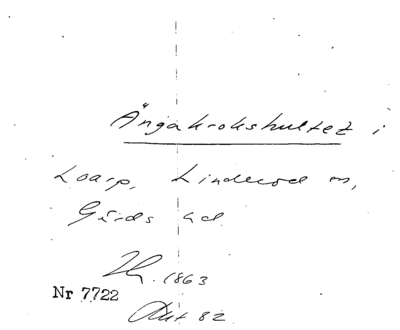 Ängakrokshultet i
Loarp, Linderöd sn,
Gärds hd
. 1863
Nr 7722
82